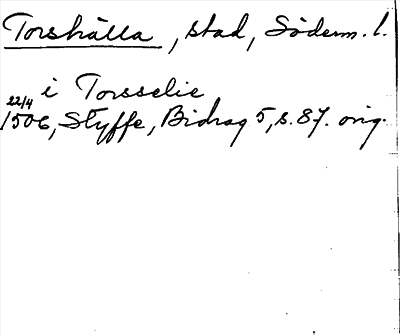 Torshälla, stad, Söderm. l.
i Torsselie
22/4
1506, Styffe, Bidrag 5, s. 87. orig.